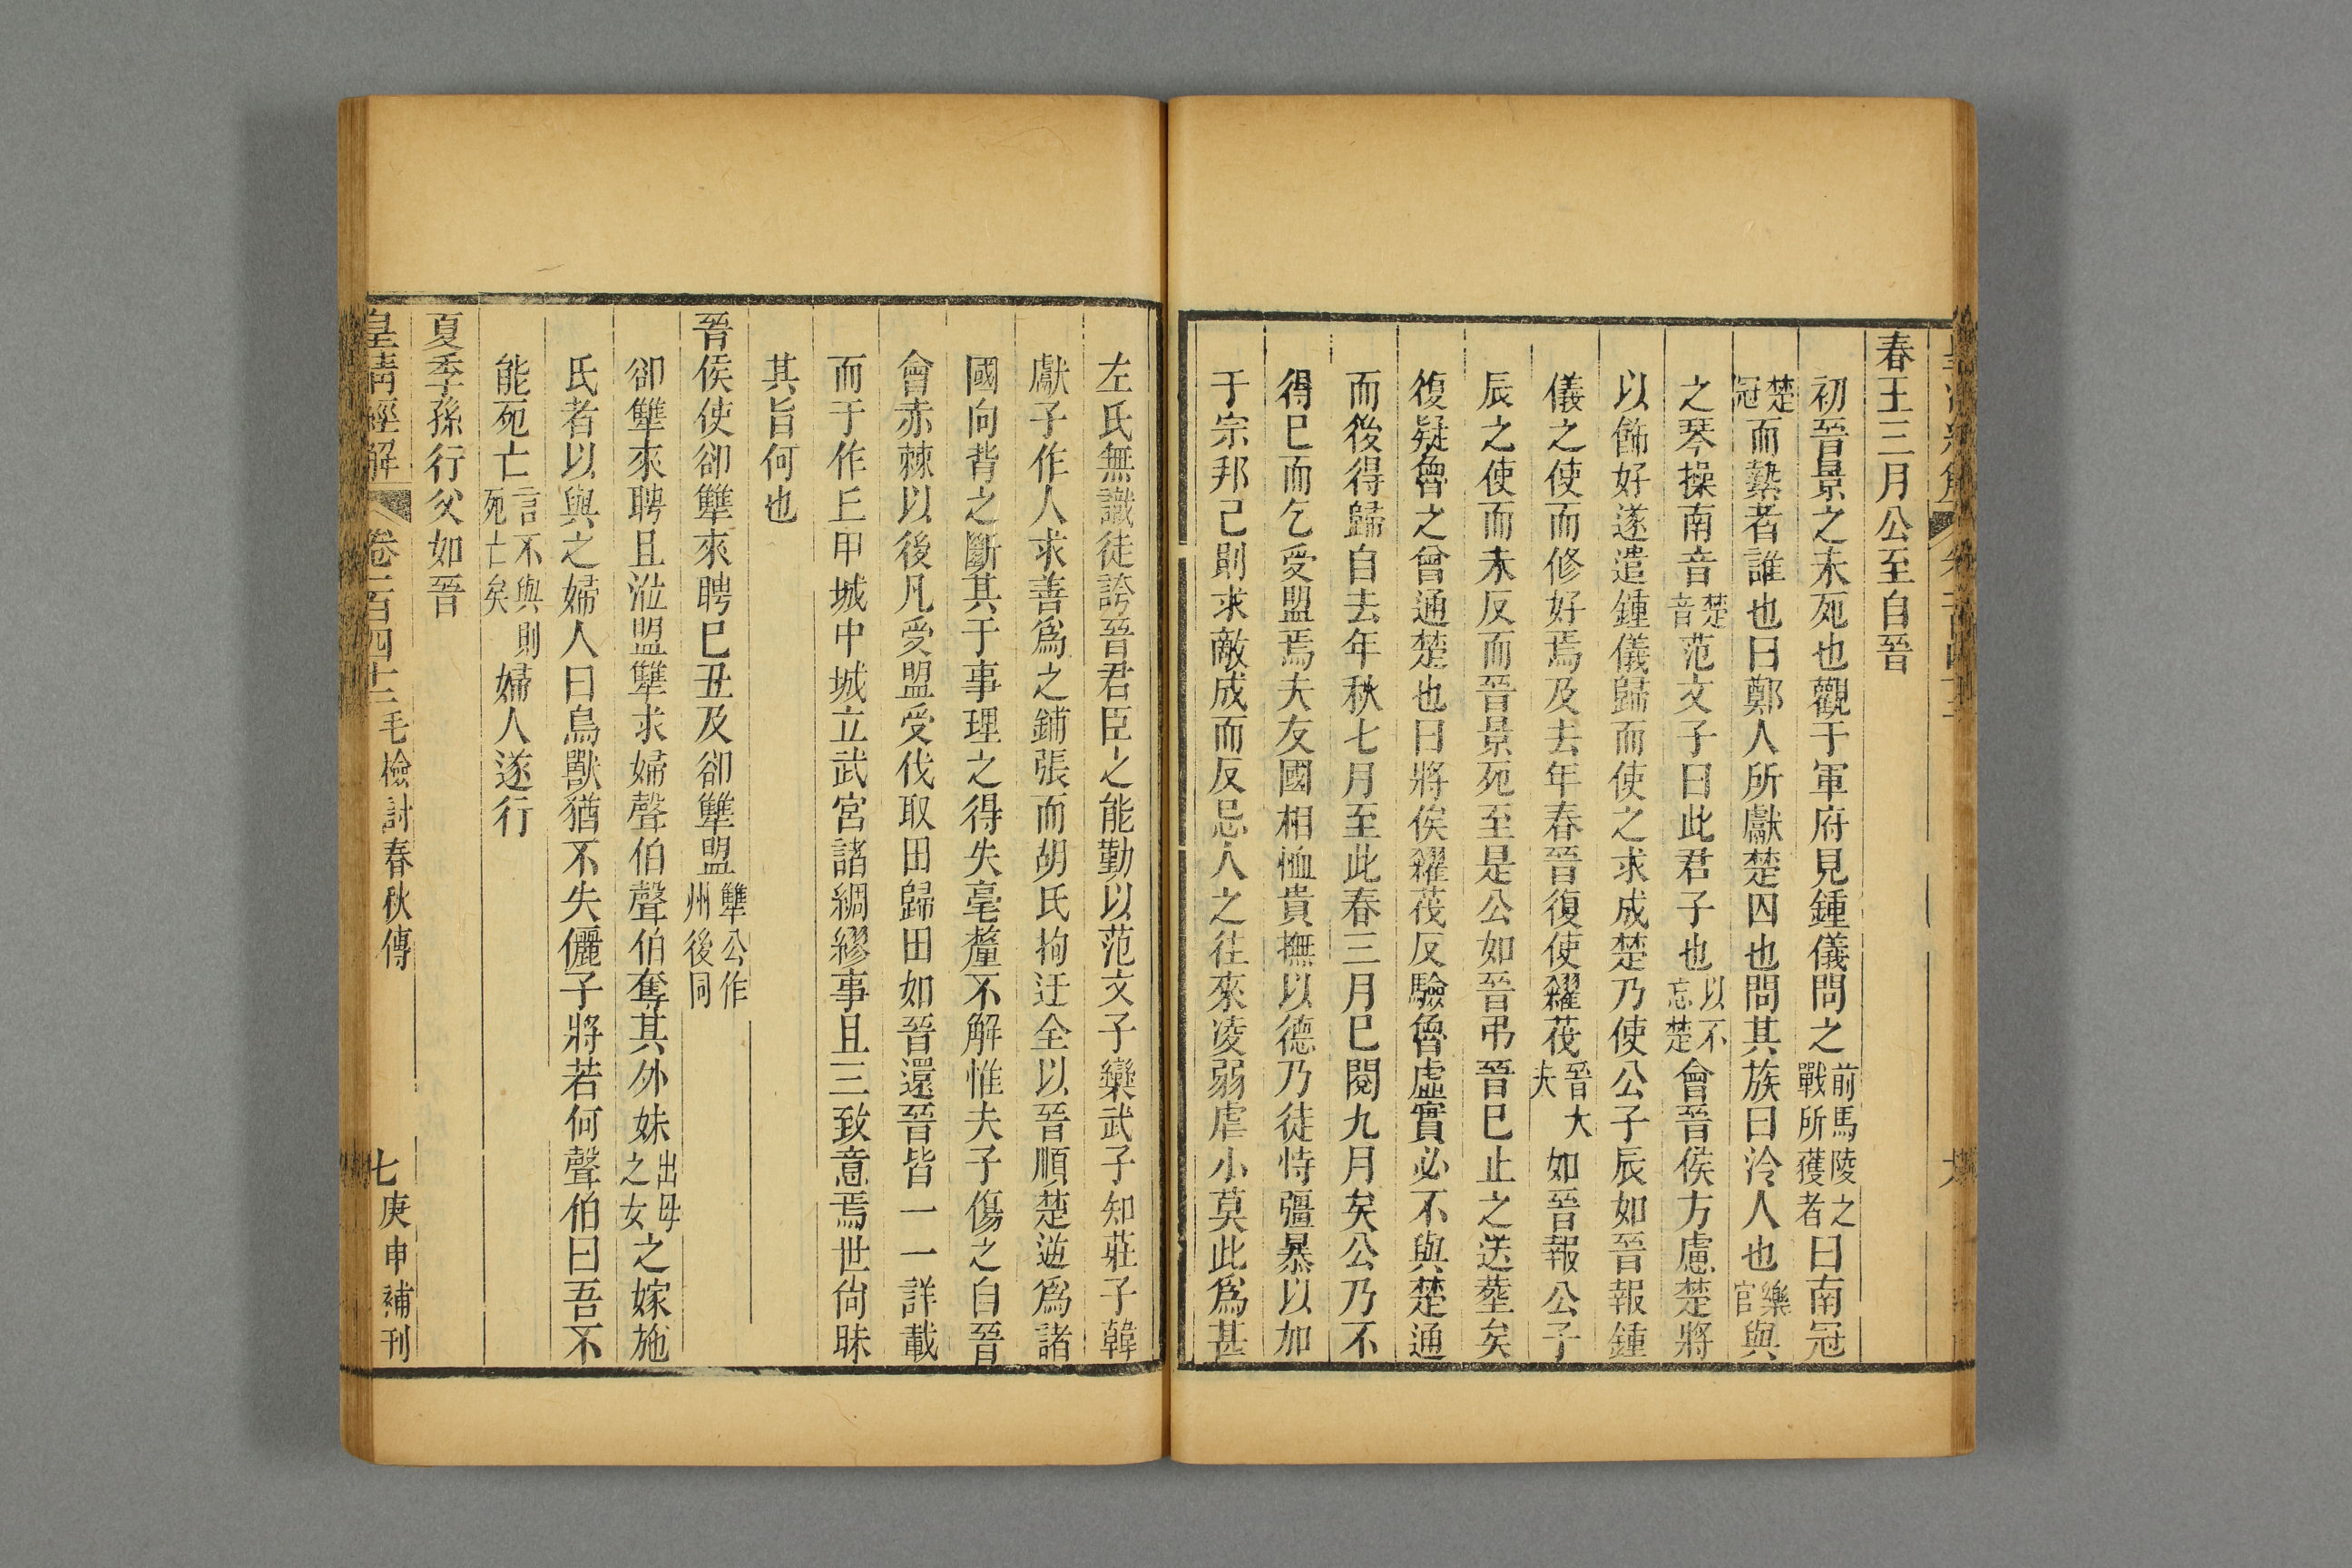 春王三月公至自晉
初晉景之未死也觀于軍府見鍾儀問之前馬陵之戰所獲者曰南冠
楚冠而縶者誰也曰鄭人所獻楚囚也問其族曰泠人也樂官與
之琴操南音楚音范文子曰此君子也以不忘楚會晉侯方慮楚將
以飾好遂遣鍾儀歸而使之求成楚乃使公子辰如晉報鍾
儀之使而修好焉及去年春晉復使糴茷晉大夫如晉報公子
辰之使而未反而晉景死至是公如晉弔晉巳止之送葬矣
復疑魯之曾通楚也曰將俟糴茷反驗魯虛實必不與楚通
而後得歸自去年秋七月至此春三月巳閱九月矣公乃不
得巳而乞受盟焉夫友國相恤貴撫以德乃徒恃彊暴以加
于宗邦己則求敵成而反忌人之往來凌弱虐小莫此爲甚
左氏無識徒誇晉君臣之能勤以范文子欒武子知莊子韓
獻子作人求善爲之鋪張而胡氏拘迂全以晉順楚逆爲諸
國向背之斷其于事理之得失毫釐不解惟夫子傷之自晉
會赤棘以後凡受盟受伐取田歸田如晉還晉皆一一詳載
而于作丘甲城中城立武宮諸綢繆事且三致意焉世尙昧
其旨何也
晉侯使卻犨來聘巳丑及卻犨盟犨公作州後同
卻犨來聘且涖盟犨求婦聲伯聲伯奪其外妹出母之女之嫁施
氏者以與之婦人曰鳥獸猶不失儷子將若何聲伯曰吾不
能死亡言不與則死亡矣婦人遂行
夏季孫行父如晉
皇清經解 卷一百四十三 毛檢討春秋傳 七 庚申補刊